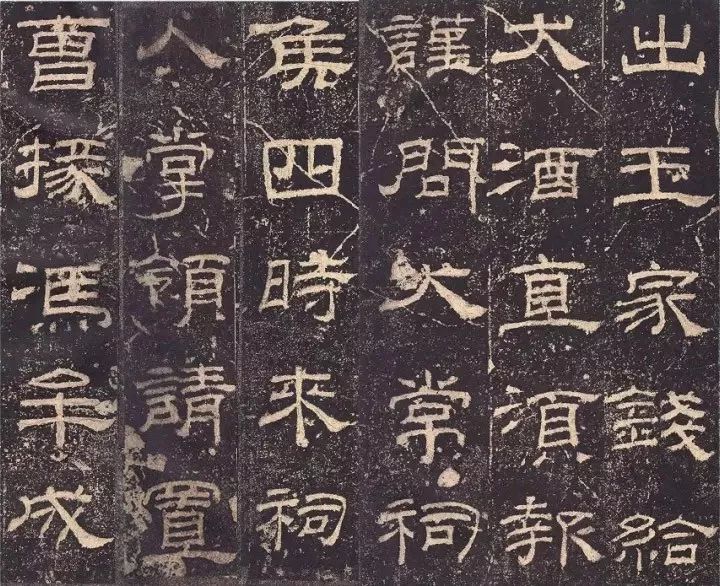 出王家錢給
大酒直須報
謹問大常祠
矦四時來祠
人掌領請置
曹掾馮牟成